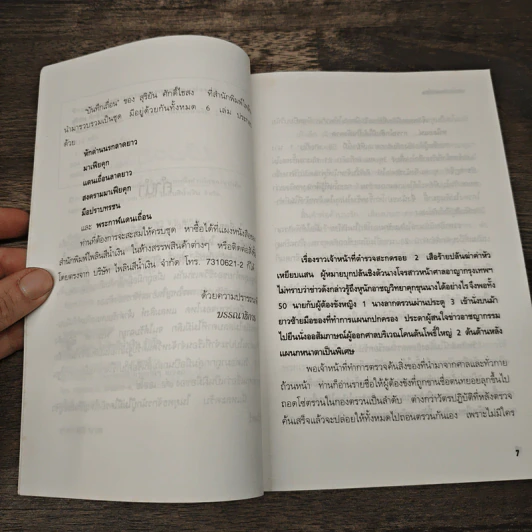 "บันทึกเถื่อน" ของ สุริยัน ศักดิ์ไธสง ที่สำนักพิมพ์
นำมารวบรวมเป็นชุด มีอยู่ด้วยกันทั้งหมด 6 เล่ม
ด้วย
หักด่านนรกลาดยาว
มาเฟียคุก
แดนเถื่อนลาดยาว
สงครามมาเฟียคุก
มือปราบทรชน
และ พระกาฬแดนเถื่อน
ท่านที่ต้องการจะสะสมให้ครบชุด หาซื้อได้ที่แผงหนังสือ
สำนักพิมพ์ไพลินสีน้ำเงิน ในห้างสรรพสินค้าต่างๆ หรือติดต่อ
โดยตรงจาก บริษัท ไพลินสีน้ำเงิน จำกัด โทร. 7310621-2
ด้วยความปรารถนา
บรรณาธิการ
เรื่องราวเจ้าหน้าที่ตำรวจสะกดรอย 2 เสือร้ายปล้นฆ่าค่าหัว
เหยียบแสน ผู้หมายบุกปล้นชิงตัวนางโจรสาวหน้าศาลอาญากรุงเทพฯ
ไม่ทราบว่าข่าวดังกล่าวรู้ถึงหูนักอาชญวิทยาคุกขุนนางได้อย่างไร จึงพอทั้ง
50 นายกับผู้ต้องขังหญิง 1 นางลากตรวนผ่านประตู 3 เข้านั่งบนม้า
ยาวซ้ายมือของที่ทำการแผนกปกครอง ประดาผู้สนใจข่าวอาชญากรรม
ไปยืนนั่งออสัมภาษณ์ผู้ออกศาลบริเวณโคนต้นโพธิ์ใหญ่ 2 ต้นด้านหลัง
แผนกหนาตาเป็นพิเศษ
พอเจ้าหน้าที่ทำการตรวจค้นสิ่งของที่นำมาจากศาลและทั่วกาย
ถ้วนหน้า ท่านก็อ่านรายชื่อให้ผู้ต้องขังที่ถูกขานชื่อทยอยลุกขึ้นไป
ถอดโซ่ตรวนในกองตรวนเป็นลำดับ ต่างกว่าวัตรปฏิบัติที่หลังตรวจ
ค้นเสร็จแล้วจะปล่อยให้ทั้งหมดไปถอนตรวนกันเอง เพราะไม่มีใคร
7